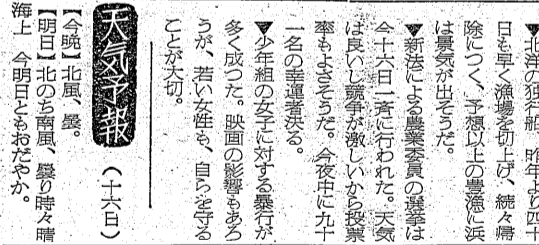 ▼北洋の独行船、昨年より四十
日も早く漁場を切上げ、続々帰
除につく、予想以上の豊漁に浜
は景気が出そうだ。
▼新法による農業委員の選挙は
今十六日一斉に行われた。天気
は良いし競争が激しいから投票
率もよさそうだ。今夜中に九十
一名の幸運者決る。
▼少年組の女子に対する暴行が
多く成つた。映画の影響もあろ
うが、若い女性も、自らを守る
ことが大切。
天気予報
(十六日)
【今晩】北風、曇。
【明日】北のち南風、曇り時々晴
海上 今明日ともおだやか。